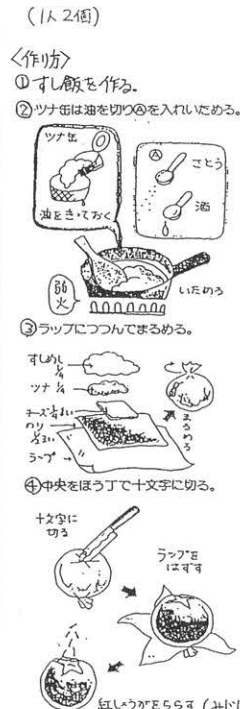 (1人2個)
〈作り方〉
①すし飯を作る。
②ツナ缶は油を切りⒶを入れいためる。
ツナ缶
油をきっておく
Ⓐ
さとう
酒
弱火
いためる
③ラップにつつんでまるめる。
すしめし 1/4
ツナ 1/4
チーズ
のり
ラップ
まるめる
④中央をほう丁で十文字に切る。
十文字に
切る
ラップを
はずす
紅しょうがをちらす